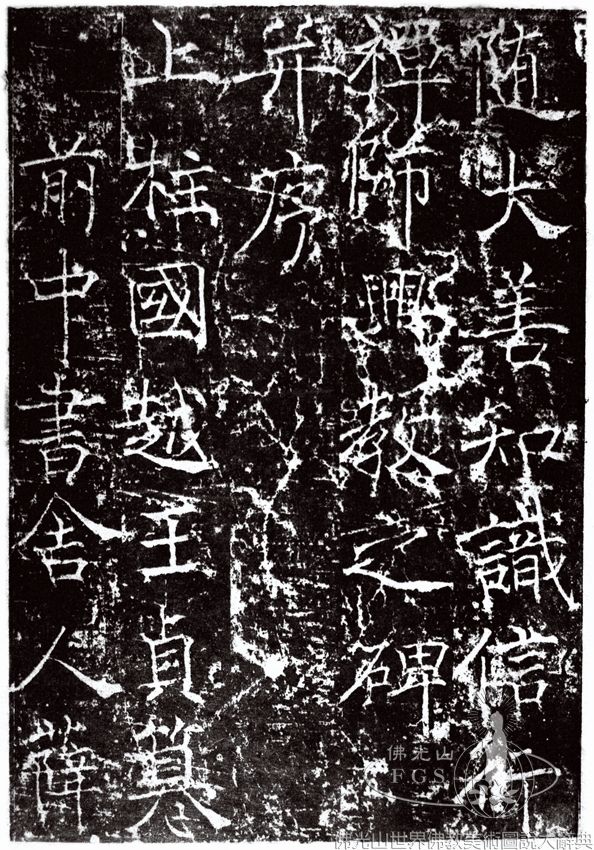 随大善知識信行
禪師興教之碑
并序
上柱國越王貞篹
前中書舍人薛
佛光山
F.G.S.
佛光山世界佛教美術圖說大辭典